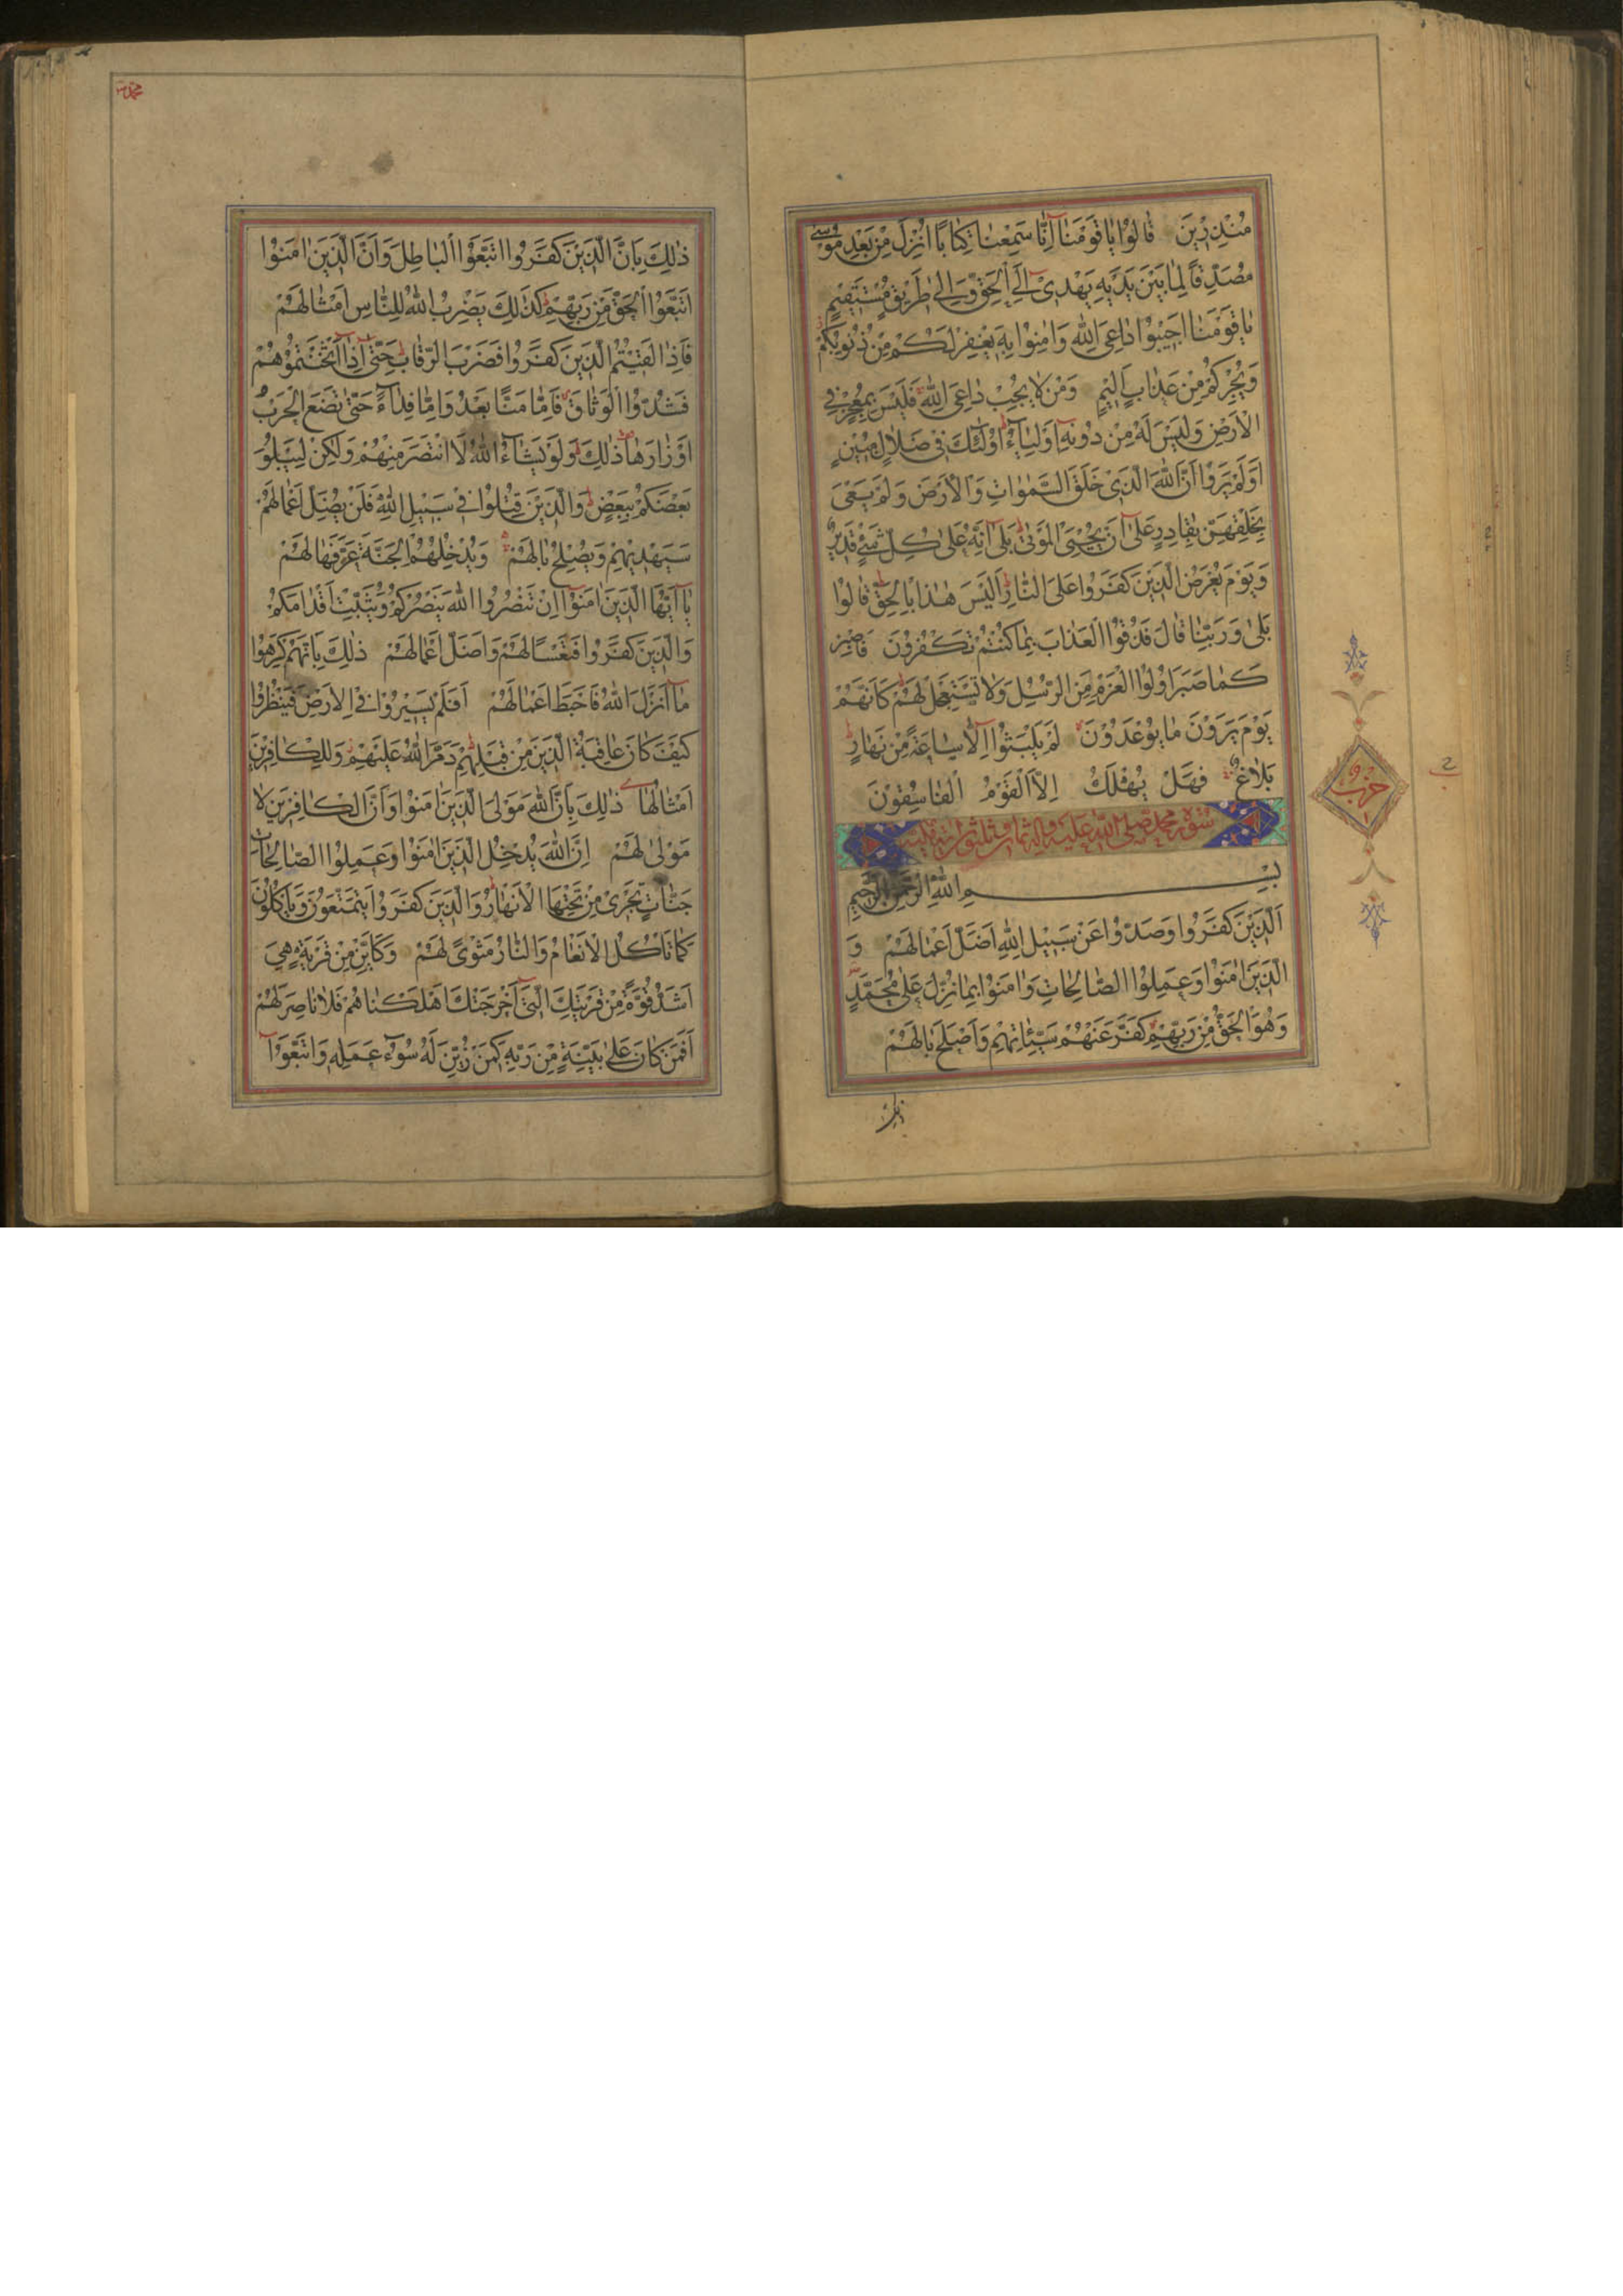 مُنْذِرِيْنَ قٰالُوْا يٰا قَوْمَنٰا اِنّٰا سَمِعْنٰا كِتٰابًا اُنْزِلَ مِنْ بَعْدِ مُوْسٰى
مُصَدِّقًا لِمٰا بَيْنَ يَدَيْهِ يَهْدِىْ اِلَى الْحَقِّ وَاِلٰى طَرِيْقٍ مُسْتَقِيْمٍ
يٰا قَوْمَنٰا اَجِيْبُوْا دٰاعِىَ اللّٰهِ وَاٰمِنُوْا بِهِ يَغْفِرْ لَكُمْ مِنْ ذُنُوبِكُمْ
وَيُجِرْكُمْ مِنْ عَذٰابٍ اَلِيْمٍ وَمَنْ لٰا يُجِبْ دٰاعِىَ اللّٰهِ فَلَيْسَ بِمُعْجِزٍ فِى
الْاَرْضِ وَلَيْسَ لَهُ مِنْ دُوْنِهِ اَوْلِيٰآءُ اُولٰئِكَ فِى ضَلٰالٍ مُبِيْنٍ
اَوَلَمْ يَرَوْا اَنَّ اللّٰهَ الَّذِىْ خَلَقَ السَّمٰوٰاتِ وَالْاَرْضَ وَلَمْ يَعْىَ
بِخَلْقِهِنَّ بِقٰادِرٍ عَلٰى اَنْ يُحْيِىَ الْمَوْتٰى بَلٰى اِنَّهُ عَلٰى كُلِّ شَىْءٍ قَدِيْرٌ
وَيَوْمَ يُعْرَضُ الَّذِيْنَ كَفَرُوا عَلَى النّٰارِ اَلَيْسَ هٰذٰا بِالْحَقِّ قٰالُوْا
بَلٰى وَرَبِّنٰا قٰالَ فَذُوْقُوْا الْعَذٰابَ بِمٰا كُنْتُمْ تَكْفُرُوْنَ فَاصْبِرْ
كَمٰا صَبَرَ اُولُوْا الْعَزْمِ مِنَ الرُّسُلِ وَلٰا تَسْتَعْجِلْ لَهُمْ كَاَنَّهُمْ
يَوْمَ يَرَوْنَ مٰا يُوْعَدُوْنَ لَمْ يَلْبَثُوْا اِلّٰا سٰاعَةً مِنْ نَهٰارٍ
بَلٰاغٌ فَهَلْ يُهْلَكُ اِلَّا الْقَوْمُ الْفٰاسِقُوْنَ
سورة محمد صلى الله عليه واله ثمان وثلثون اية
بِسْمِ اللّٰهِ الرَّحْمٰنِ الرَّحِيمِ
اَلَّذِيْنَ كَفَرُوا وَصَدُّوْا عَنْ سَبِيْلِ اللّٰهِ اَضَلَّ اَعْمٰالَهُمْ وَ
الَّذِيْنَ اٰمَنُوْا وَعَمِلُوْا الصّٰالِحٰاتِ وَاٰمَنُوْا بِمٰا نُزِّلَ عَلٰى مُحَمَّدٍ
وَهُوَ الْحَقُّ مِنْ رَبِّهِمْ كَفَّرَ عَنْهُمْ سَيِّئٰاتِهِمْ وَاَصْلَحَ بٰالَهُمْ
ذلك
حزب
محمد
ذٰلِكَ بِاَنَّ الَّذِيْنَ كَفَرُوا اتَّبَعُوْا الْبٰاطِلَ وَاَنَّ الَّذِيْنَ اٰمَنُوْا
اتَّبَعُوْا الْحَقَّ مِنْ رَبِّهِمْ كَذٰلِكَ يَضْرِبُ اللّٰهُ لِلنّٰاسِ اَمْثٰالَهُمْ
فَاِذٰا لَقِيْتُمُ الَّذِيْنَ كَفَرُوا فَضَرْبَ الرِّقٰابِ حَتّٰى اِذٰا اَثْخَنْتُمُوْهُمْ
فَشُدُّوْا الْوَثٰاقَ فَاِمّٰا مَنًّا بَعْدُ وَاِمّٰا فِدٰاءً حَتّٰى تَضَعَ الْحَرْبُ
اَوْزٰارَهٰا ذٰلِكَ وَلَوْ يَشٰآءُ اللّٰهُ لَاانْتَصَرَ مِنْهُمْ وَلٰكِنْ لِيَبْلُوَ
بَعْضَكُمْ بِبَعْضٍ وَالَّذِيْنَ قُتِلُوْا فِى سَبِيْلِ اللّٰهِ فَلَنْ يُضِلَّ اَعْمٰالَهُمْ
سَيَهْدِيْهِمْ وَيُصْلِحُ بٰالَهُمْ وَيُدْخِلُهُمُ الْجَنَّةَ عَرَّفَهٰا لَهُمْ
يٰا اَيُّهَا الَّذِيْنَ اٰمَنُوْا اِنْ تَنْصُرُوا اللّٰهَ يَنْصُرْكُمْ وَيُثَبِّتْ اَقْدٰامَكُمْ
وَالَّذِيْنَ كَفَرُوا فَتَعْسًا لَهُمْ وَاَضَلَّ اَعْمٰالَهُمْ ذٰلِكَ بِاَنَّهُمْ كَرِهُوْا
مٰا اَنْزَلَ اللّٰهُ فَاَحْبَطَ اَعْمٰالَهُمْ اَفَلَمْ يَسِيْرُوْا فِى الْاَرْضِ فَيَنْظُرُوْا
كَيْفَ كٰانَ عٰاقِبَةُ الَّذِيْنَ مِنْ قَبْلِهِمْ دَمَّرَ اللّٰهُ عَلَيْهِمْ وَلِلْكٰافِرِيْنَ
اَمْثٰالُهٰا ذٰلِكَ بِاَنَّ اللّٰهَ مَوْلَى الَّذِيْنَ اٰمَنُوْا وَاَنَّ الْكٰافِرِيْنَ لٰا
مَوْلٰى لَهُمْ اِنَّ اللّٰهَ يُدْخِلُ الَّذِيْنَ اٰمَنُوْا وَعَمِلُوْا الصّٰالِحٰاتِ
جَنّٰاتٍ تَجْرِىْ مِنْ تَحْتِهَا الْاَنْهٰارُ وَالَّذِيْنَ كَفَرُوْا يَتَمَتَّعُوْنَ وَيَاْكُلُوْنَ
كَمٰا تَاْكُلُ الْاَنْعٰامُ وَالنّٰارُ مَثْوًى لَهُمْ وَكَاَيِّنْ مِنْ قَرْيَةٍ هِىَ
اَشَدُّ قُوَّةً مِنْ قَرْيَتِكَ الَّتِى اَخْرَجَتْكَ اَهْلَكْنٰاهُمْ فَلٰا نٰاصِرَ لَهُمْ
اَفَمَنْ كٰانَ عَلٰى بَيِّنَةٍ مِنْ رَبِّهِ كَمَنْ زُيِّنَ لَهُ سُوْٓءُ عَمَلِهِ وَاتَّبَعُوْا